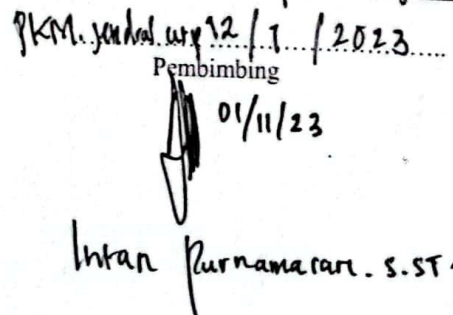 PKM. Jendral urip 12 / 1 / 2023
Pembimbing
01/11/23
Intan Purnamasari. S.ST.